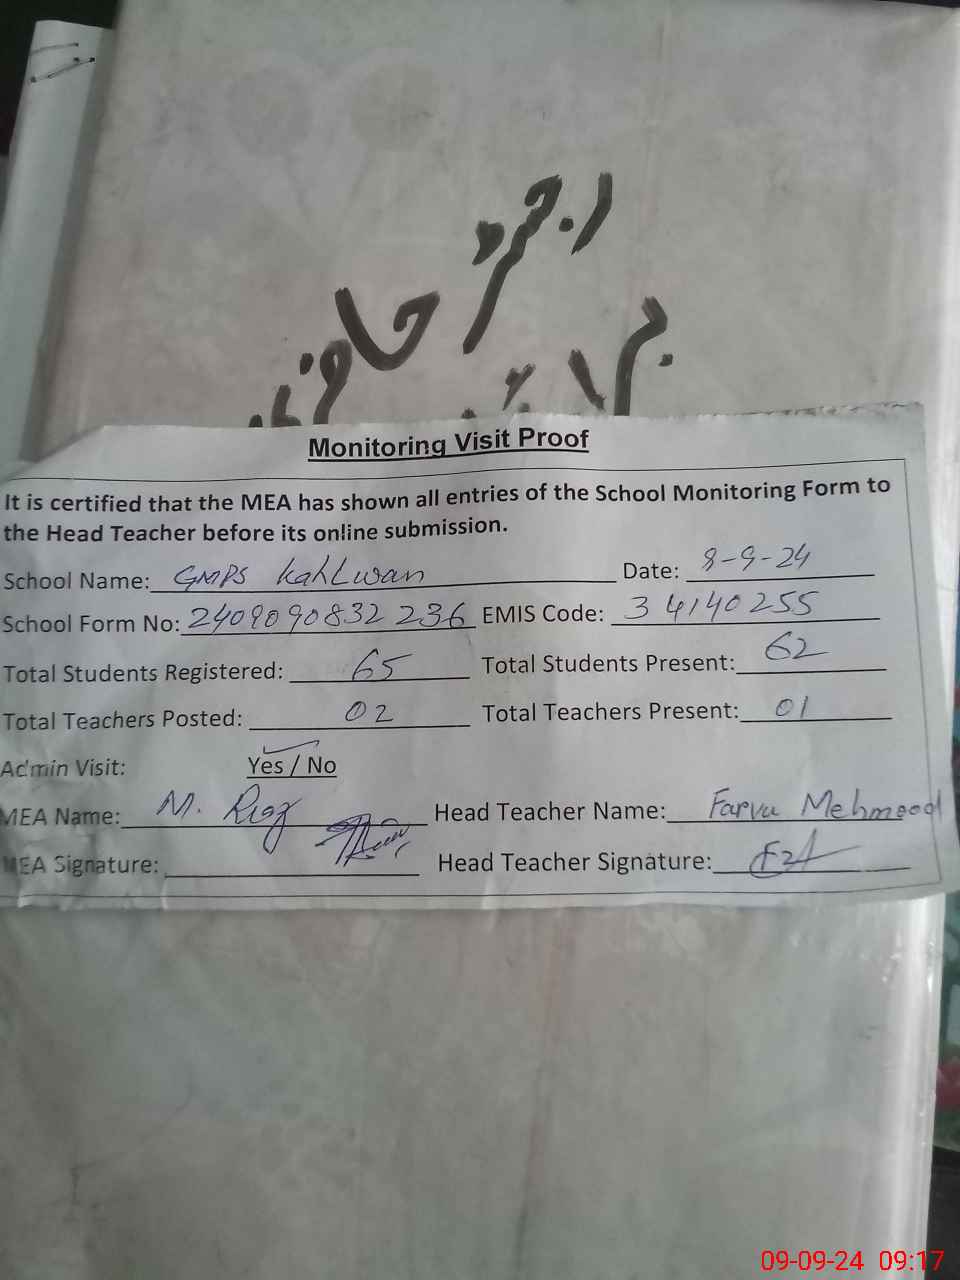 Monitoring Visit Proof
It is certified that the MEA has shown all entries of the School Monitoring Form to
the Head Teacher before its online submission.
School Name: GMPS Kahlwan Date: 8-9-24
School Form No: 2409090832236 EMIS Code: 34140255
Total Students Registered: 65 Total Students Present: 62
Total Teachers Posted: 02 Total Teachers Present: 01
Admin Visit: Yes / No
MEA Name: M. Riaz Head Teacher Name: Farva Mehmood
MEA Signature: Head Teacher Signature:
09-09-24 09:17